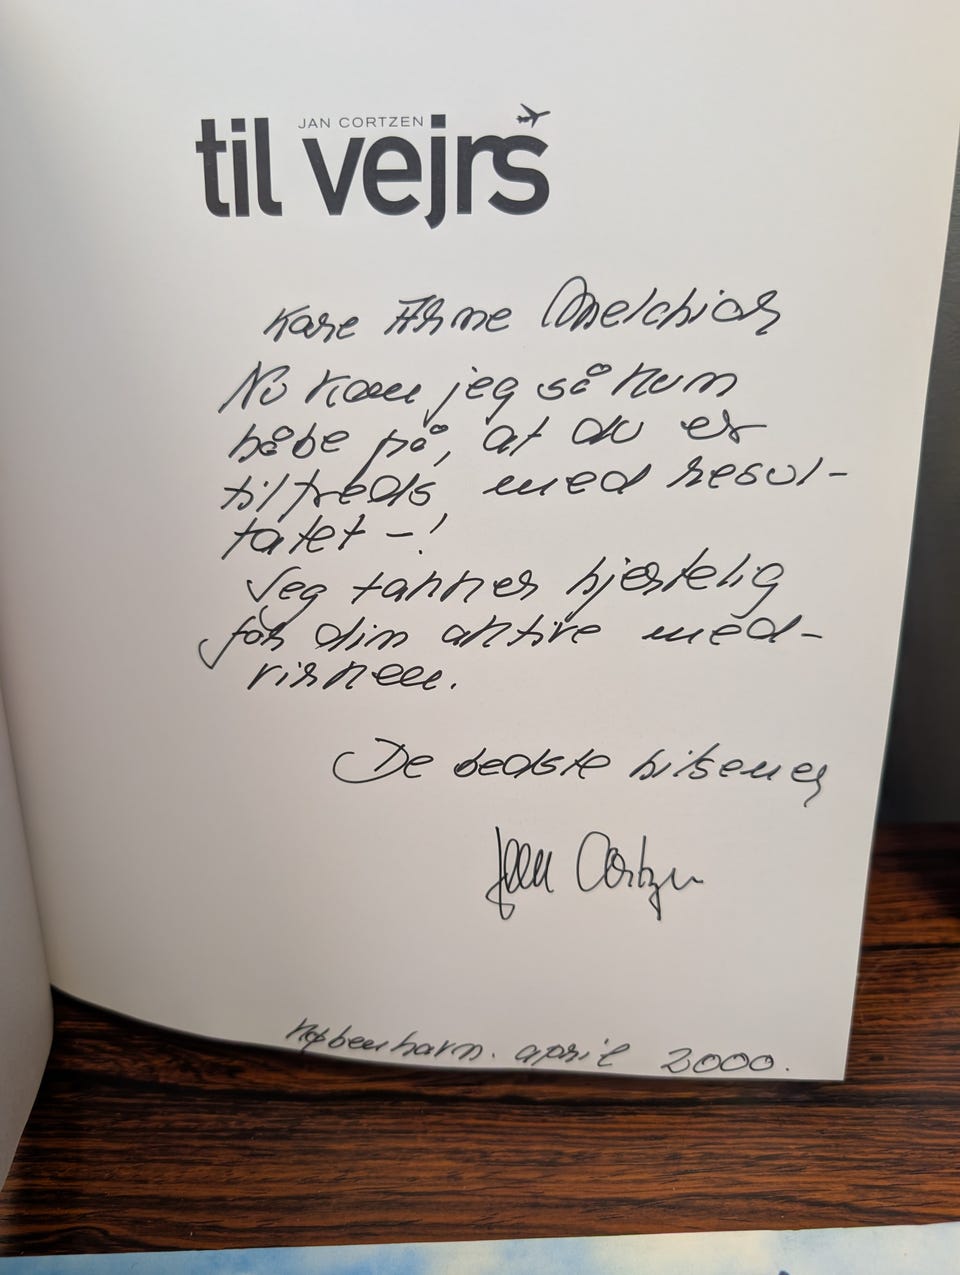 JAN CORTZEN
til vejrs
Kære Arne Melchior
Nu kan jeg så kun
håbe på, at du er
tilfreds med resul-
tatet -!
Jeg takker hjertelig
for din aktive med-
virken.
De bedste hilsener
Jan Cortzen
København. april 2000.